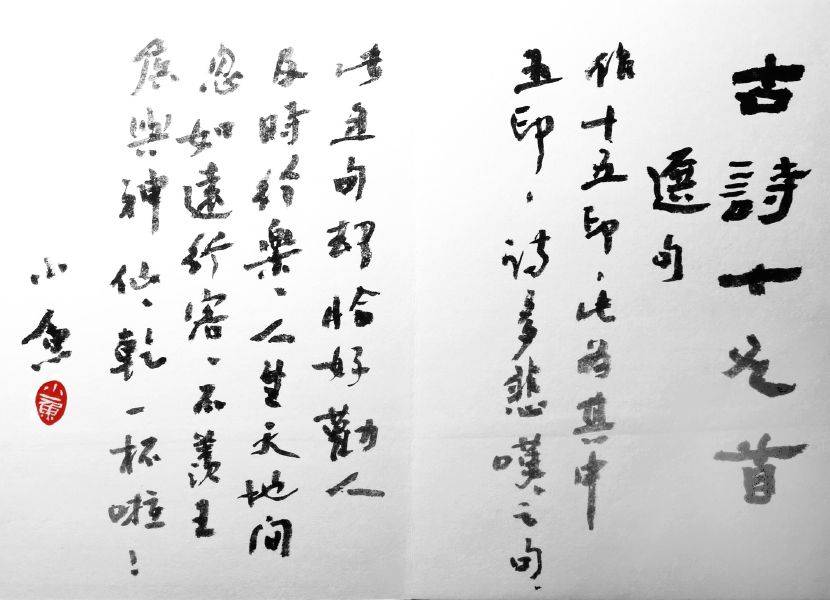 古詩十九首
選句
十五印，此為其中
五印，詩多悲嘆之句，
此五句却恰好勸人
及時行樂，人生天地間
忽如遠行客，不羨王
侯與神仙，乾一杯啦！
小魚